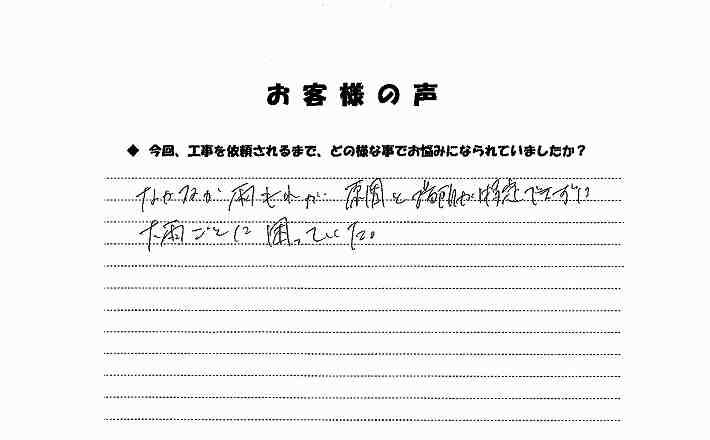 お客様の声
◆ 今回、工事を依頼されるまで、どの様な事でお悩みになられていましたか？
なかなか雨もれが 原因と場所が特定できずに
大雨ごとに困っていた。